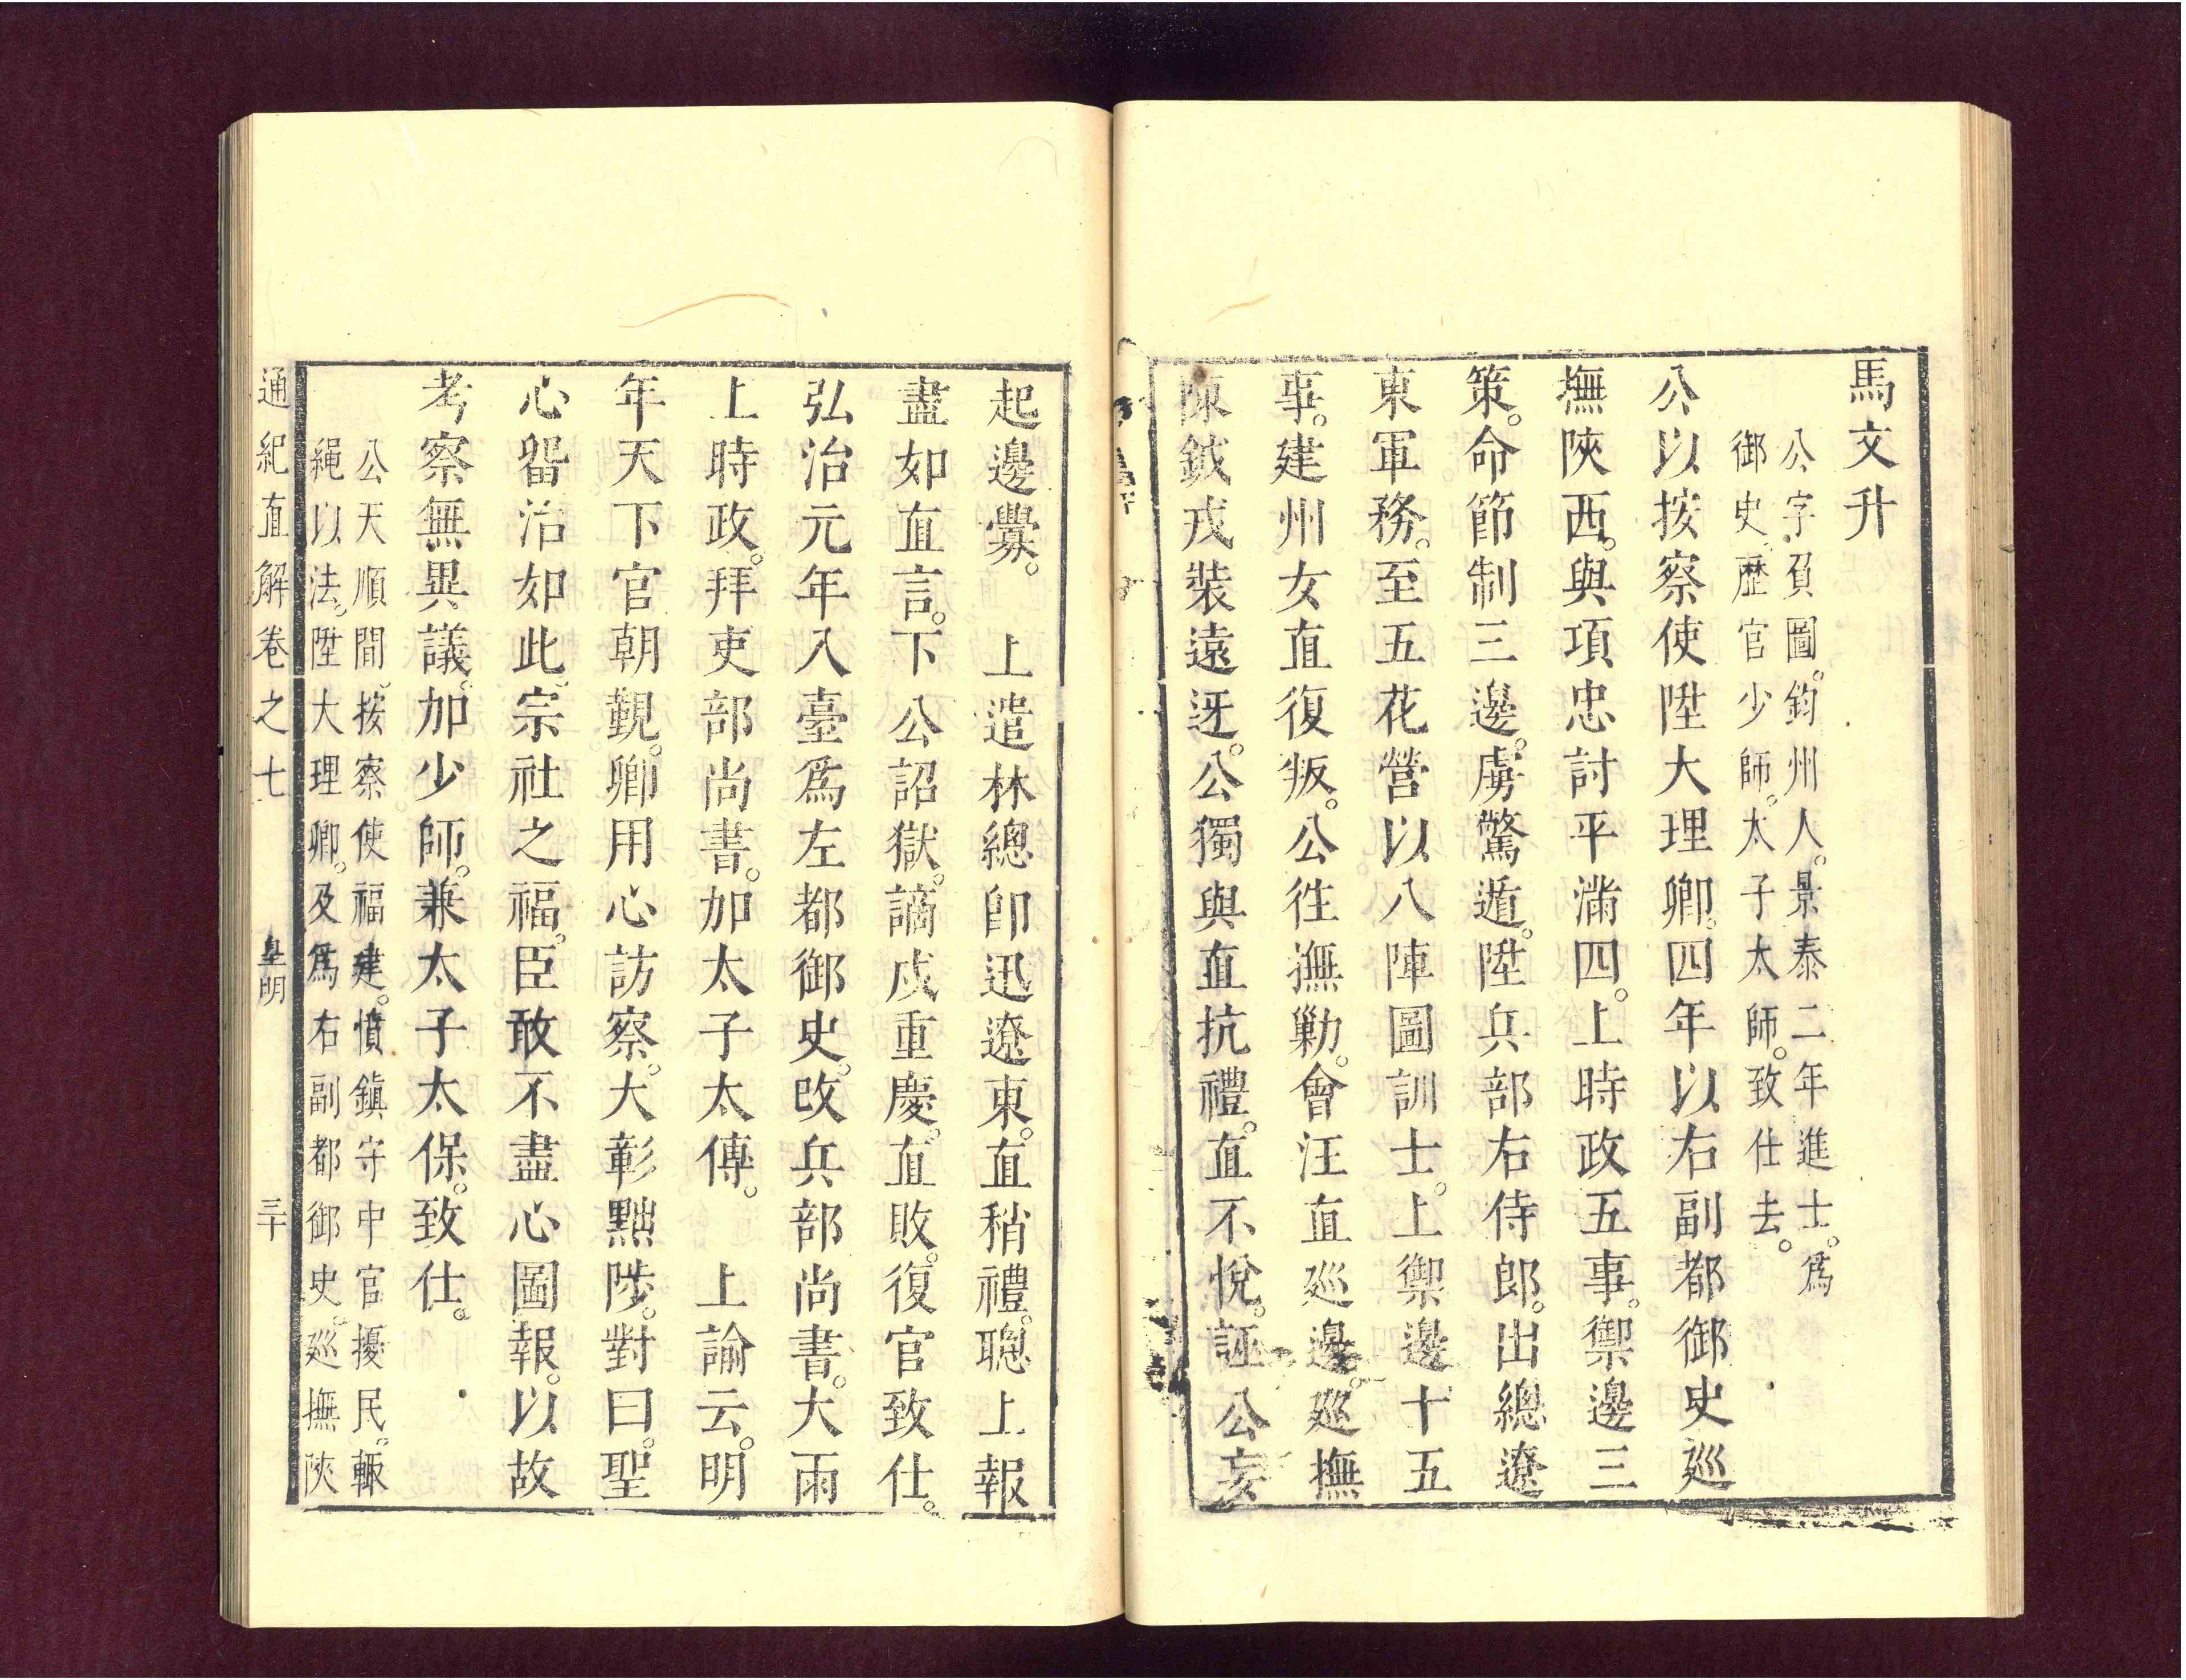 馬文升
公字負圖。鈞州人。景泰二年進士。爲
御史。歷官少師。太子太師。致仕去。
公以按察使陞大理卿。四年以右副都御史廵
撫陝西。與項忠討平滿四。上時政五事。禦邊三
策。命節制三邊。虜驚遁。陞兵部右侍郎。出總遼
東軍務。至五花營以八陣圖訓士。上禦邊十五
事。建州女直復叛。公徃撫勦。會汪直廵邊。廵撫
陳鉞戎裝遠迓。公獨與直抗禮。直不悅。誣公妄
起邊釁。　上遣林總卽迅遼東。直稍禮。聰上報
盡如直言。下公詔獄。謫戍重慶。直敗。復官致仕。
弘治元年入臺爲左都御史。改兵部尚書。大雨
上時政。拜吏部尚書。加太子太傅。　上諭云。明
年天下官朝覲。卿用心訪察。大彰黜陟。對曰。聖
心畱治如此。宗社之福。臣敢不盡心圖報。以故
考察無異議。加少師。兼太子太保。致仕。
公天順間。按察使福建。憤鎮守中官擾民。輙
繩以法。陞大理卿。及爲右副都御史。廵撫陝
通紀直解卷之七　皇明　三十